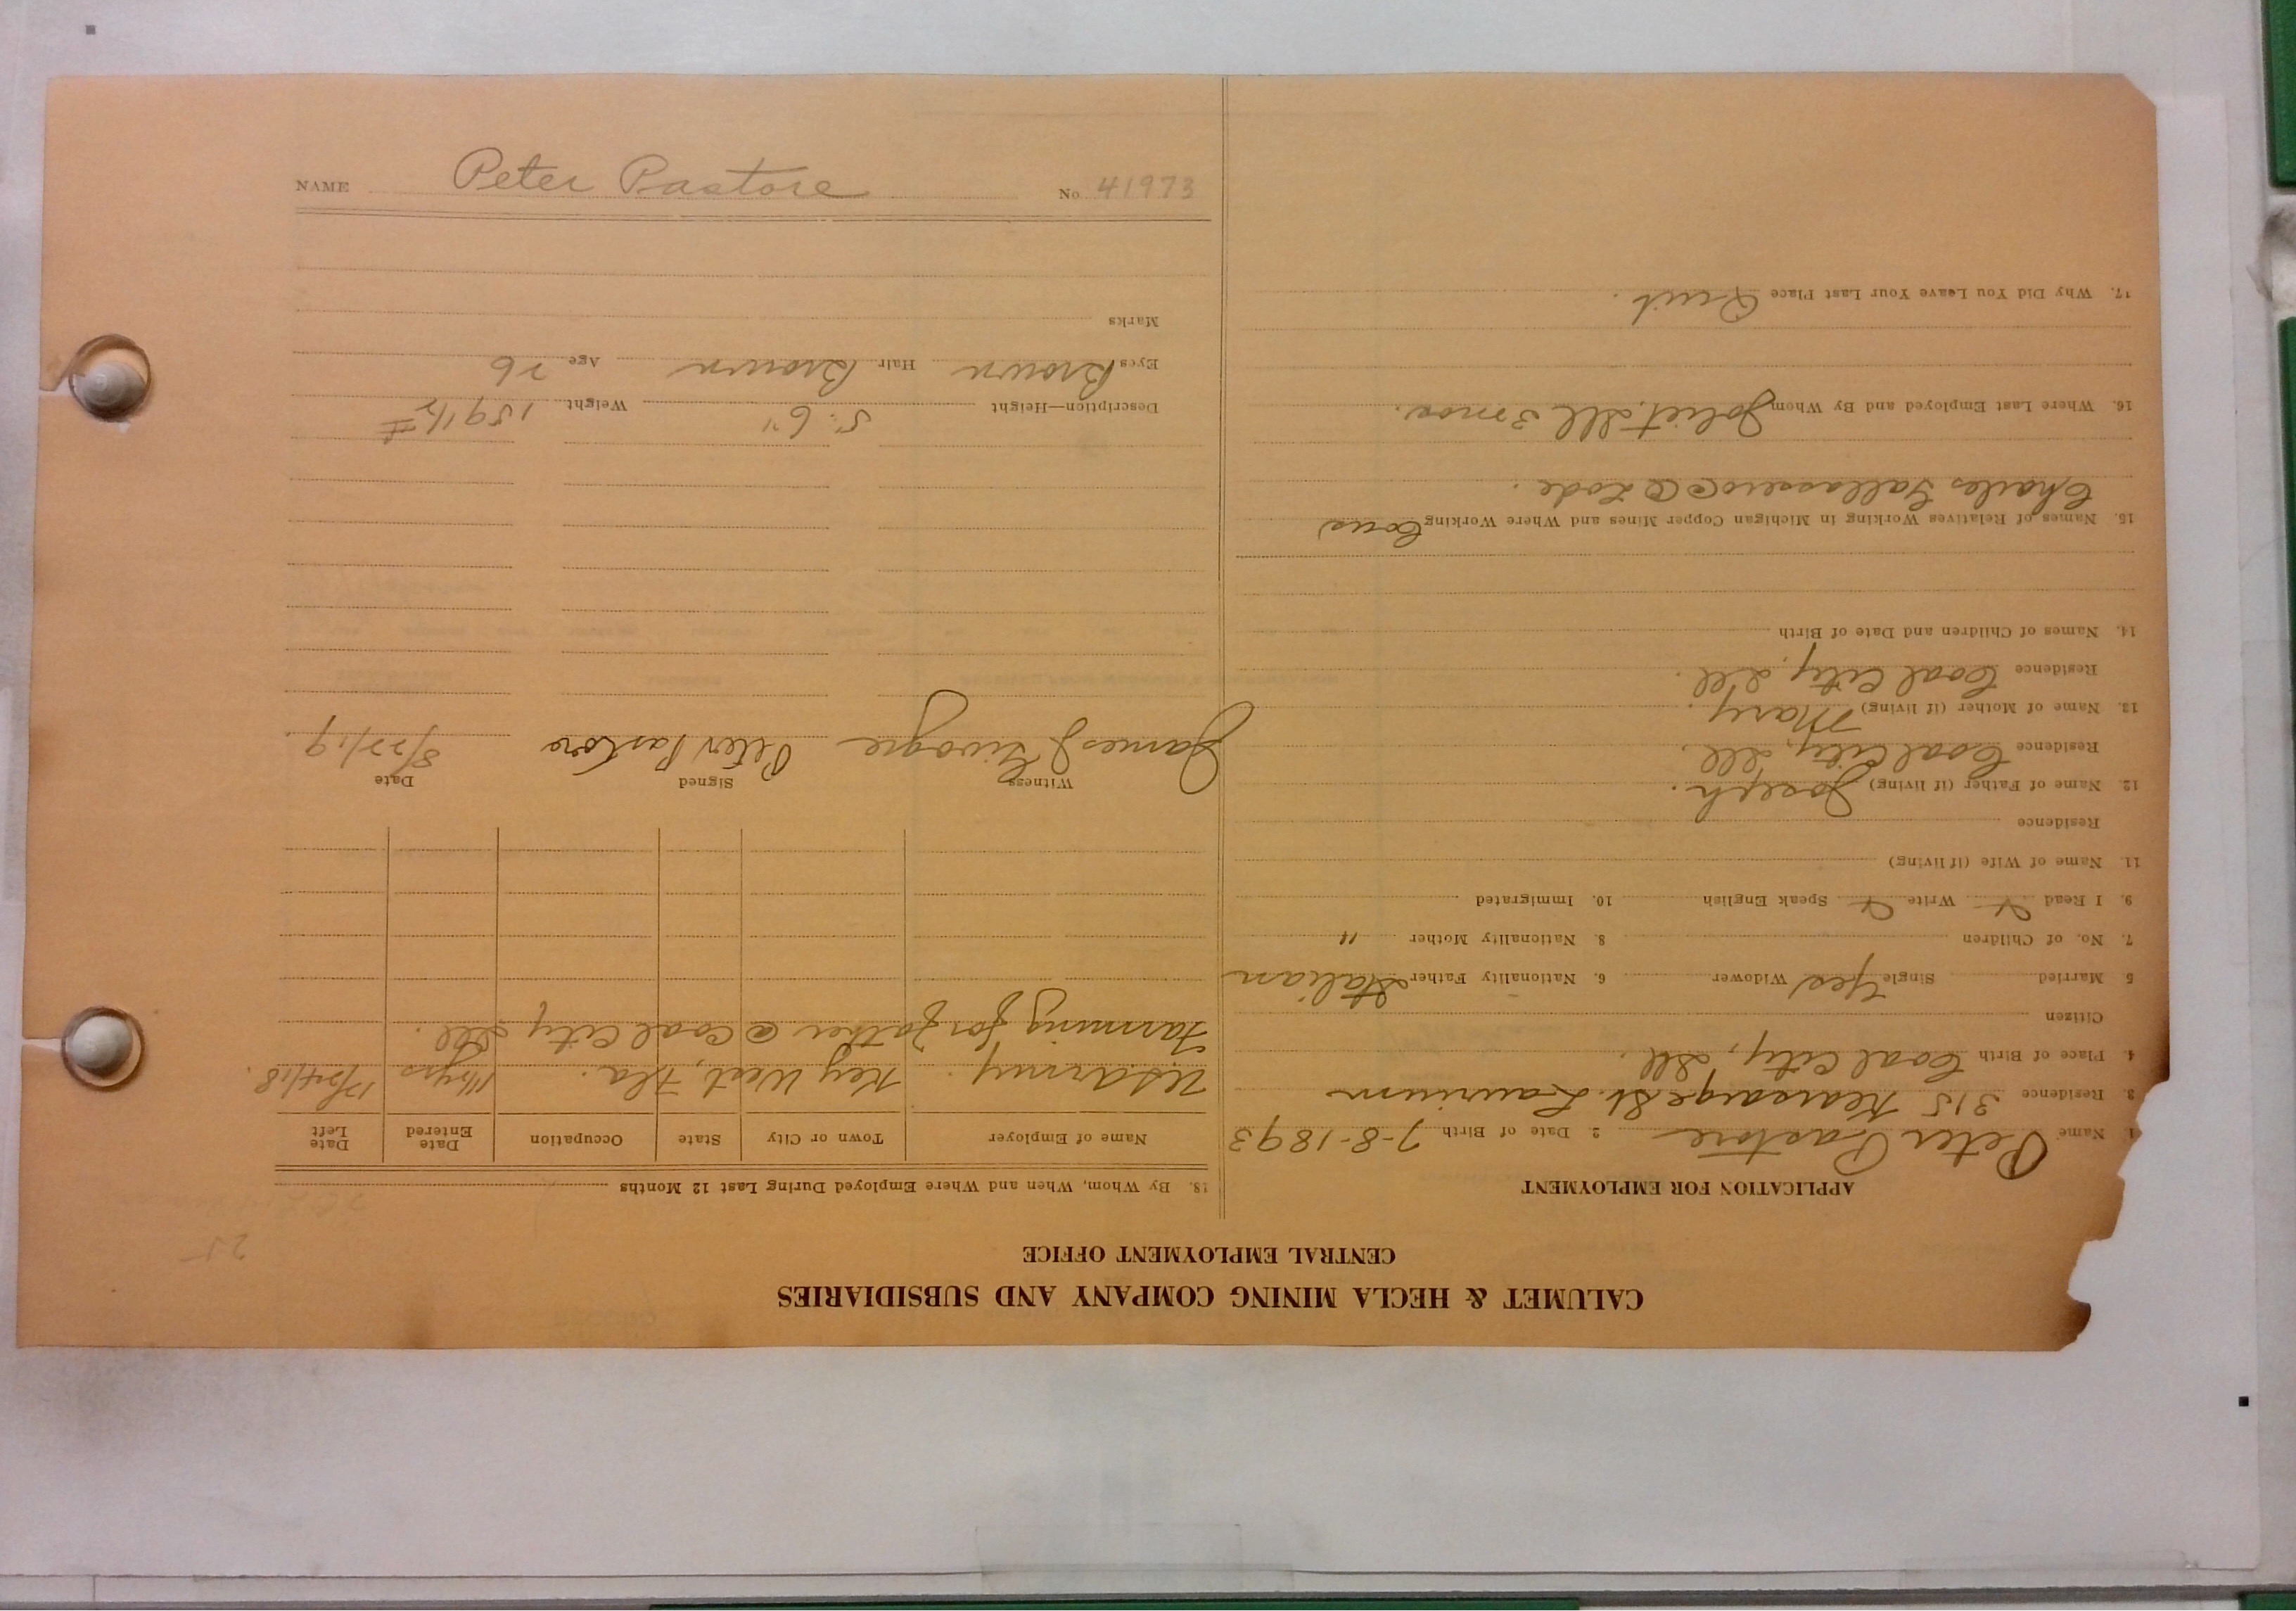 CALUMET & HECLA MINING COMPANY AND SUBSIDIARIES
CENTRAL EMPLOYMENT OFFICE
25
APPLICATION FOR EMPLOYMENT
1. Name Peter Pastore 2. Date of Birth 7-8-1893
3. Residence 315 Kearsarge St. Laurium
4. Place of Birth Coal City, Ill.
Citizen
5 Married Single Yes Widower 6. Nationality Father Italian
7. No. of Children 8. Nationality Mother "
9. I Read Write Speak English 10. Immigrated
11. Name of Wife (if living)
Residence
12. Name of Father (if living) Joseph.
Residence Coal City, Ill.
13. Name of Mother (if living) Mary.
Residence Coal City, Ill.
14. Names of Children and Date of Birth
15. Names of Relatives Working in Michigan Copper Mines and Where Working Cous
Charles @ Lode.
16. Where Last Employed and By Whom Joliet, Ill 3 mos.
17. Why Did You Leave Your Last Place Quit.
18. By Whom, When and Where Employed During Last 12 Months
Name of Employer Town or City State Occupation Date Entered Date Left
U.S. Army. Key West, Fla. 12/24/18.
Farming for father @ Coal City Ill.
Witness Signed Date
James J Peter Pastore 8/22/19.
Description—Height 5' 6" Weight 159 1/2 #
Eyes Brown Hair Brown Age 26
Marks
NAME Peter Pastore No. 41973